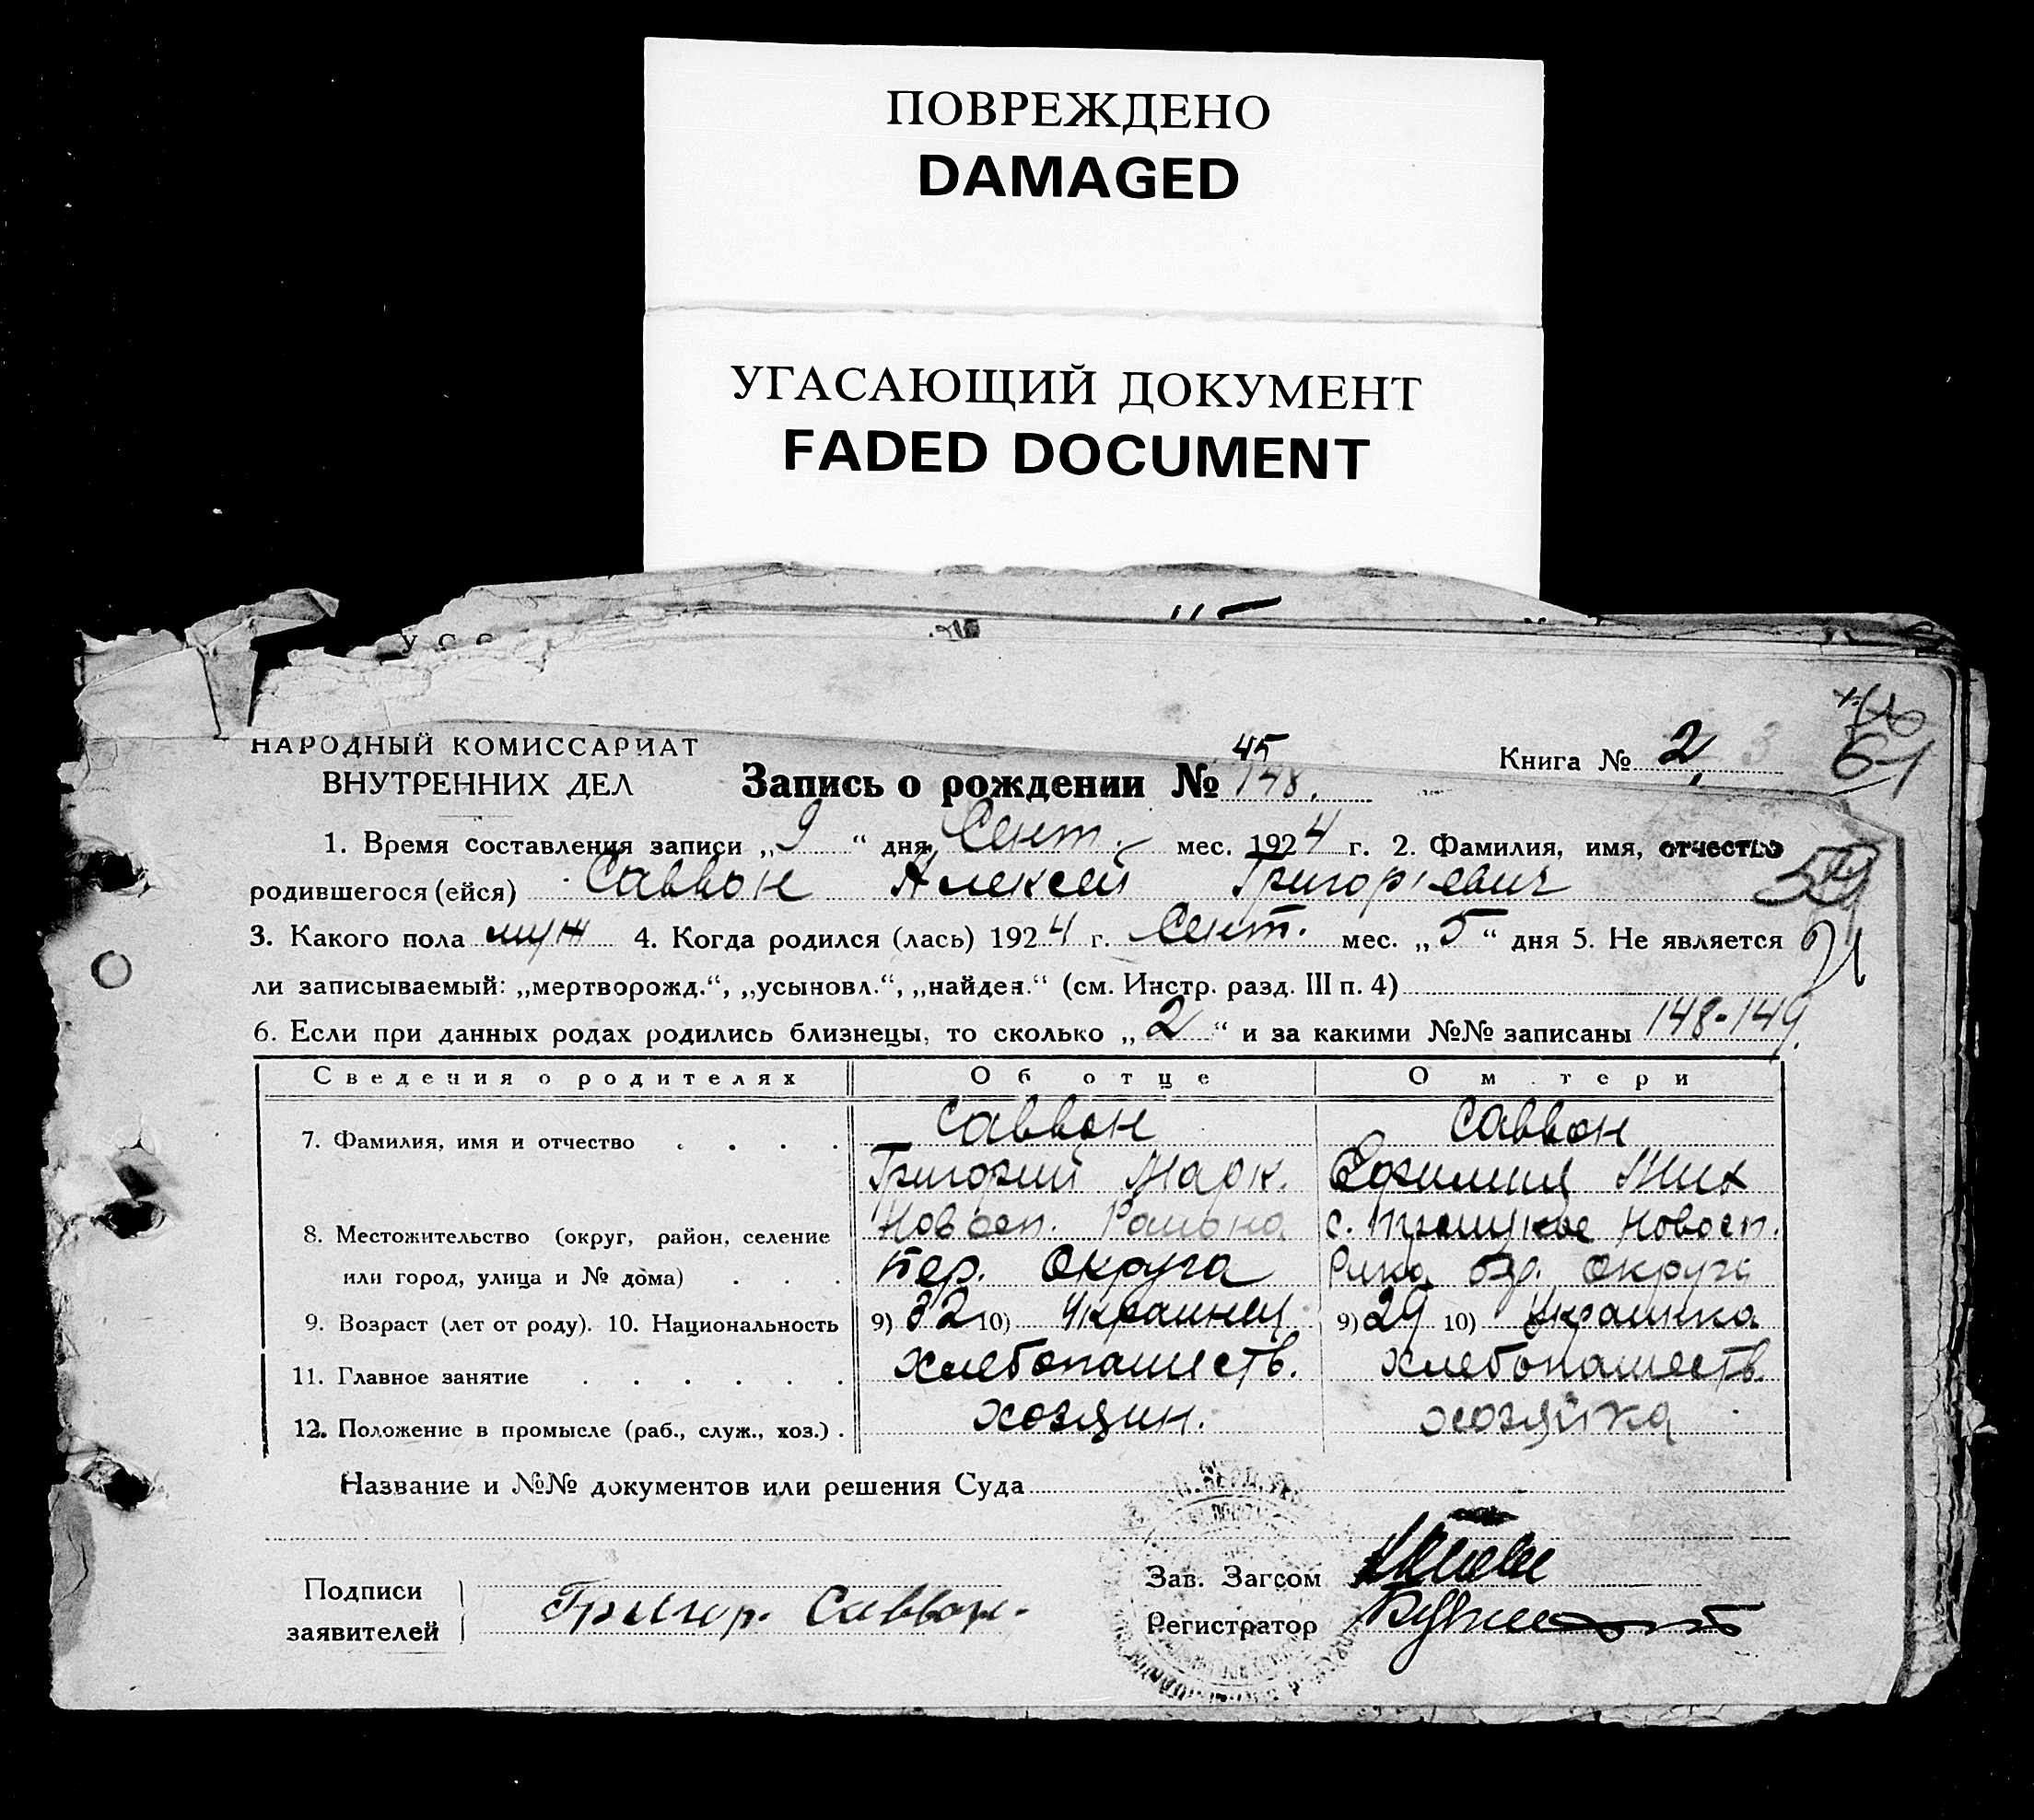 ПОВРЕЖДЕНО
DAMAGED
УГАСАЮЩИЙ ДОКУМЕНТ
FADED DOCUMENT
УСС
НАРОДНЫЙ КОМИССАРИАТ
ВНУТРЕННИХ ДЕЛ
45
Запись о рождении № 148.
Книга № 2 3
61
1. Время составления записи „9“ дня Сент. мес. 1924 г. 2. Фамилия, имя, отчество
родившегося (ейся) Саввон Алексей Григорьевич
3. Какого пола муж 4. Когда родился (лась) 1924 г. Сент. мес. „5“ дня 5. Не является
ли записываемый: „мертворожд.“, „усыновл.“, „найден.“ (см. Инстр. разд. III п. 4)
6. Если при данных родах родились близнецы, то сколько „2“ и за какими №№ записаны 148-149.
Сведения о родителях Об отце О м тери
7. Фамилия, имя и отчество Саввон Саввон
Григорий Марк. Ефимия Мих
8. Местожительство (округ, район, селение Новосп. Района с. Новосп.
или город, улица и № дома) бер. Округа Рина бер. Округа
9. Возраст (лет от роду). 10. Национальность 9) 32 10) Украинец 9) 29 10) Украинка
11. Главное занятие хлебопашеств. хлебопашеств.
12. Положение в промысле (раб., служ., хоз.) хозяин. хозяйка
Название и №№ документов или решения Суда
Подписи
заявителей
Григор. Саввон.
Зав. Загсом
Регистратор